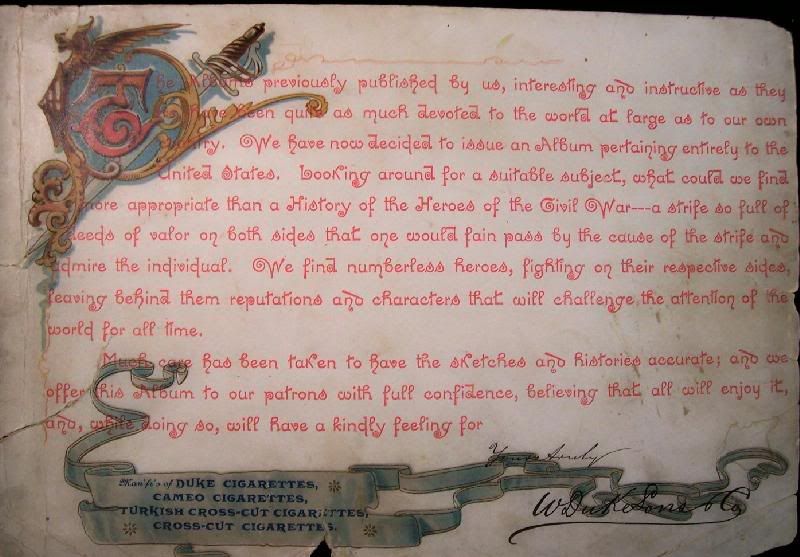 The Albums previously published by us, interesting and instructive as they
have been quite as much devoted to the world at large as to our own
country. We have now decided to issue an Album pertaining entirely to the
United States. Looking around for a suitable subject, what could we find
more appropriate than a History of the Heroes of the Civil War—a strife so full of
deeds of valor on both sides that one would fain pass by the cause of the strife and
admire the individual. We find numberless heroes, fighting on their respective sides,
leaving behind them reputations and characters that will challenge the attention of the
world for all time.
Much care has been taken to have the sketches and histories accurate; and we
offer this Album to our patrons with full confidence, believing that all will enjoy it,
and, while doing so, will have a kindly feeling for
Yours truly
W. Duke Sons & Co
Man'f's of DUKE CIGARETTES,
CAMEO CIGARETTES,
TURKISH CROSS-CUT CIGARETTES,
CROSS-CUT CIGARETTES.